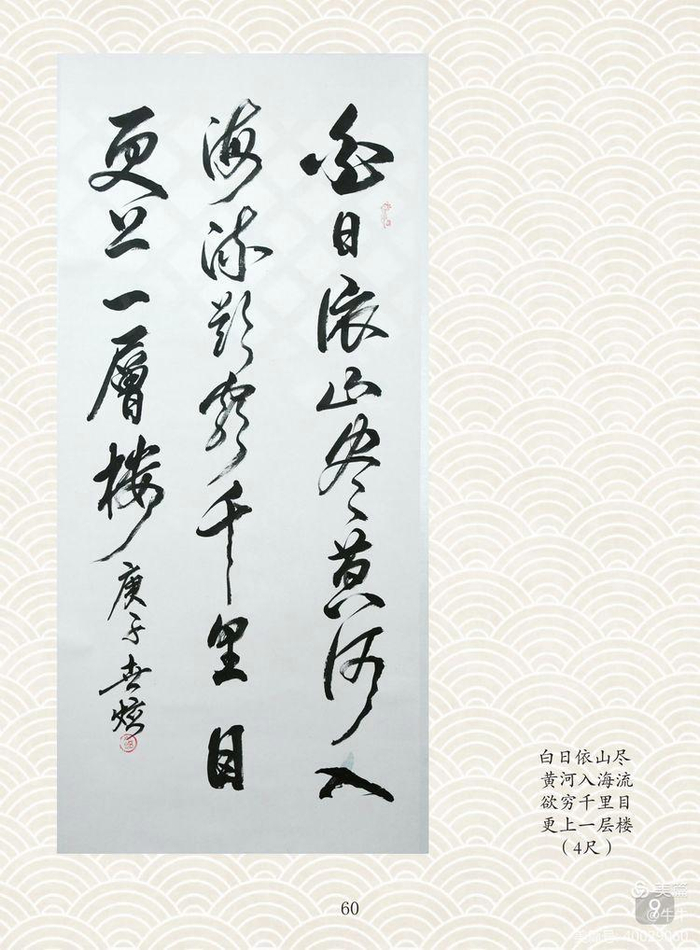 白日依山尽黄河入
海流欲穷千里目
更上一層楼
庚子
白日依山尽
黄河入海流
欲穷千里目
更上一层楼
（4尺）
60
美篇